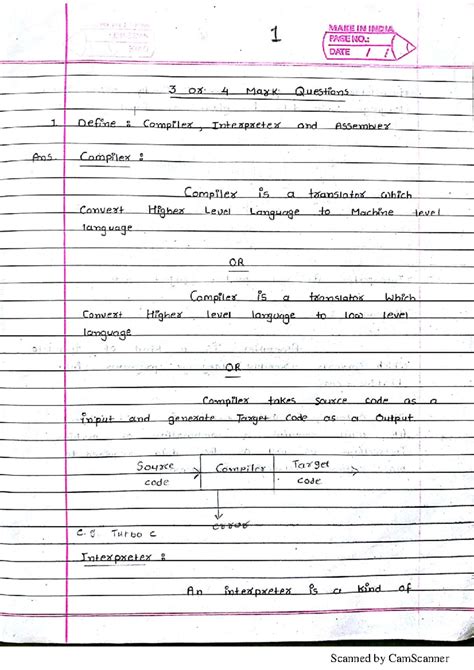 1
MAKE IN INDIA
PAGE NO.:
DATE / /
3 or 4 Mark Questions
1. Define : Compiler, Interpreter and Assembler
Ans. Compiler :
Compiler is a translator which
Convert Higher Level Language to Machine level
language
OR
Compiler is a translator which
Convert Higher level language to low level
language
OR
Compiler takes source code as a
input and generate Target code as a Output
Source code Compiler Target code
error
e.g. Turbo C
Interpreter :
An interpreter is a kind of
Scanned by CamScanner